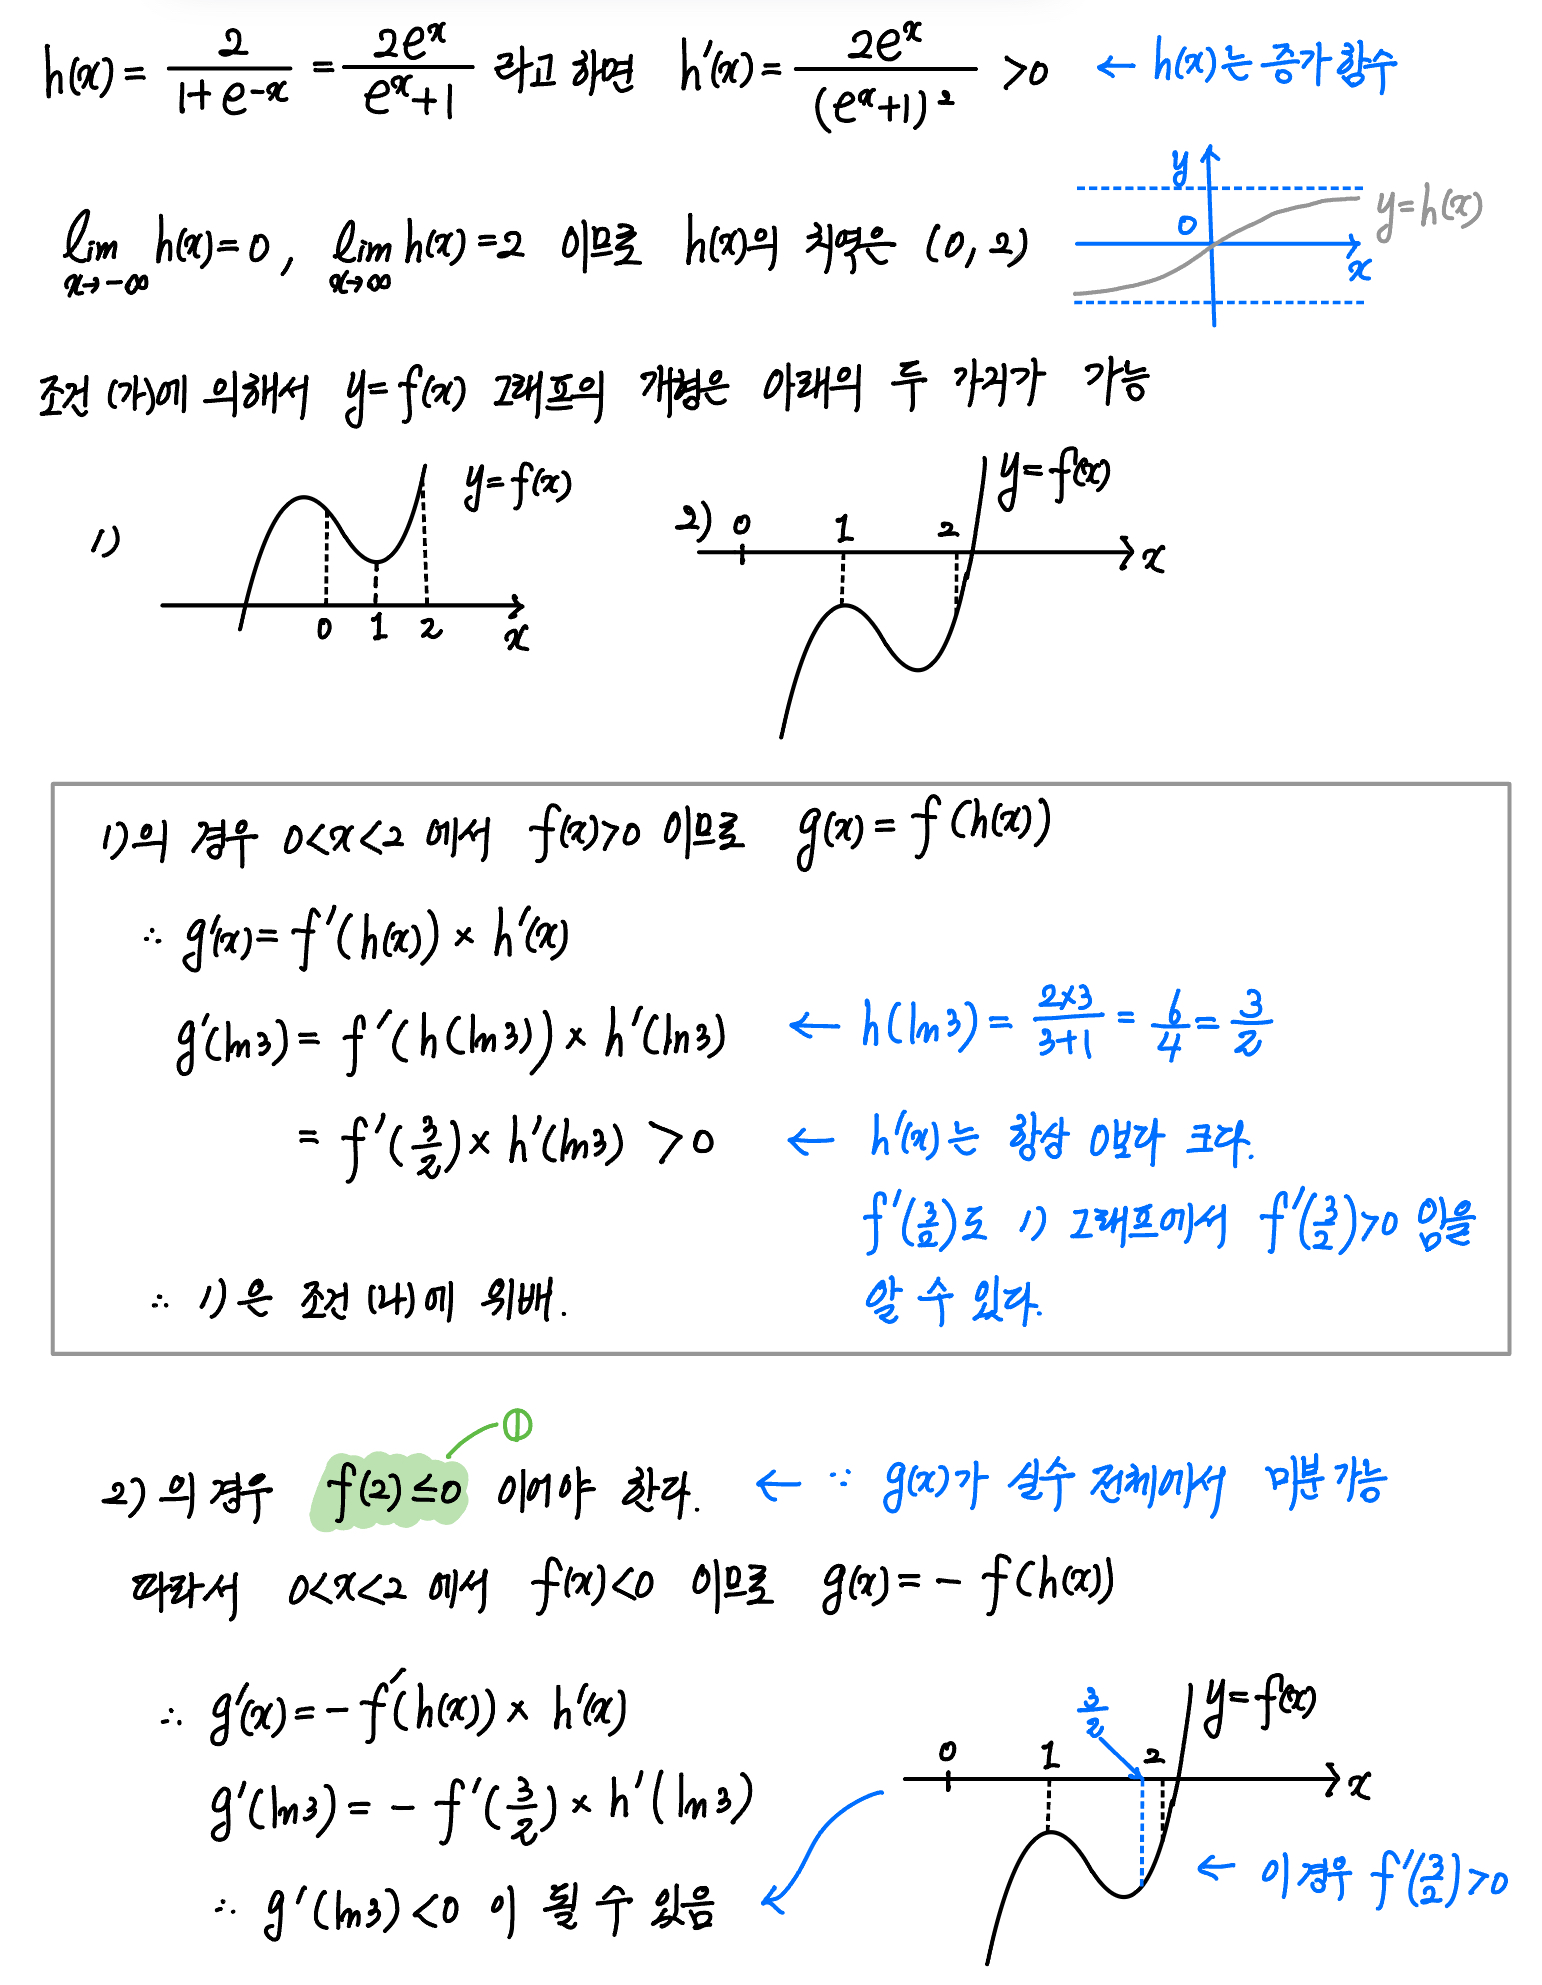 h(x) = 2/(1+e^-x) = 2e^x/(e^x+1) 라고 하면 h'(x) = 2e^x/(e^x+1)^2 >0 ← h(x)는 증가함수
lim x→-∞ h(x)=0, lim x→∞ h(x)=2 이므로 h(x)의 치역은 (0, 2)
y 0 x y=h(x)
조건 (가)에 의해서 y=f(x) 그래프의 개형은 아래의 두 가지가 가능
1) y=f(x) 0 1 2 x
2) 0 1 2 x y=f(x)
1)의 경우 0<x<2 에서 f(x)>0 이므로 g(x) = f(h(x))
∴ g'(x) = f'(h(x)) × h'(x)
g'(ln3) = f'(h(ln3)) × h'(ln3) ← h(ln3) = 2×3/(3+1) = 6/4 = 3/2
= f'(3/2) × h'(ln3) >0 ← h'(x)는 항상 0보다 크다.
f'(3/2)도 1) 그래프에서 f'(3/2)>0 임을
∴ 1)은 조건 (나)에 위배. 알 수 있다.
①
2)의 경우 f(2)≤0 이어야 한다. ← ∵ g(x)가 실수 전체에서 미분가능
따라서 0<x<2 에서 f(x)<0 이므로 g(x) = - f(h(x))
∴ g'(x) = - f'(h(x)) × h'(x)
3/2 y=f(x)
0 1 2 x
g'(ln3) = - f'(3/2) × h'(ln3)
← 이 경우 f'(3/2)>0
∴ g'(ln3)<0 이 될 수 있음